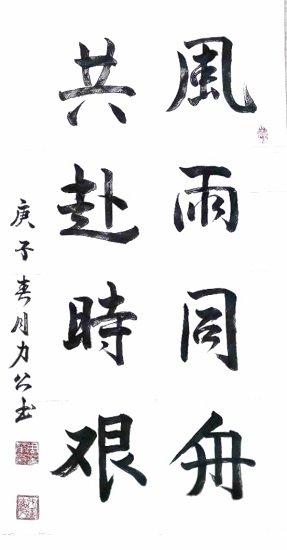 風雨同舟
共赴時艰
庚子春月力公书